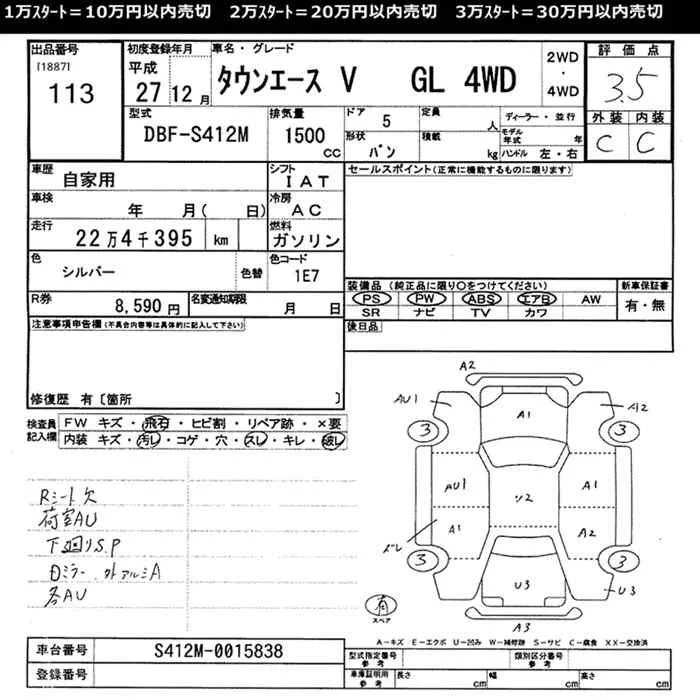 1万ｽﾀｰﾄ＝10万円以内売切　2万ｽﾀｰﾄ＝20万円以内売切　3万ｽﾀｰﾄ＝30万円以内売切
出品番号
[1887]
113
初度登録年月
平成
27 12月
車名・グレード
タウンエース V GL 4WD
2WD
・
4WD
評価点
3.5
型式
DBF-S412M
排気量
1500
cc
ドア
5
定員
人
ディーラー・並行
形状
バン
積載
kg
モデル年式
年
ハンドル 左・右
外装 内装
C C
車歴
自家用
シフト
IAT
セールスポイント(正常に機能するものに限ります)
車検
年 月( 日)
冷房
AC
走行
22万4千395 km
燃料
ガソリン
色
シルバー
色替
色コード
1E7
装備品 (純正品に限り○をつけてください)
PS PW ABS エアB AW
SR ナビ TV カワ
新車保証書
有・無
R券
8,590円
名変通知期限
月 日
後日品
注意事項申告欄(不具合内容等は具体的に記入して下さい)
修復歴 有〔箇所 〕
検査員
記入欄
FW キズ・飛石・ヒビ割・リペア跡・×要
内装 キズ・汚レ・コゲ・穴・スレ・キレ・破レ
Rシート欠
荷室AU
下廻りS.P
Dミラー、外アルミA
各AU
A2
AU1
A1
A2
3
3
AU1
ソ2
A1
A1
A2
ズレ
3
3
U3
U3
A3
有
スペア
A－キズ E－エクボ U－凹み W－補修跡 S－サビ C－腐食 XX－交換済
車台番号
S412M-0015838
登録番号
型式指定番号
参考
類別区分番号
参考
車庫証明用
参考
長さ
cm
幅
cm
高さ
cm